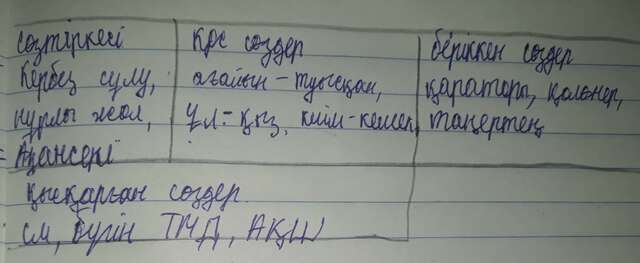 сөзтіркесі қос сөздер біріккен сөздер
Кербез сұлу, ағайын-туысқан, қараторы, қолөнер,
нұрлы жол, ұл-қыз, киім-кешек, таңертең
Ақансері
қысқарған сөздер
см, бүгін ТМД, АҚШ